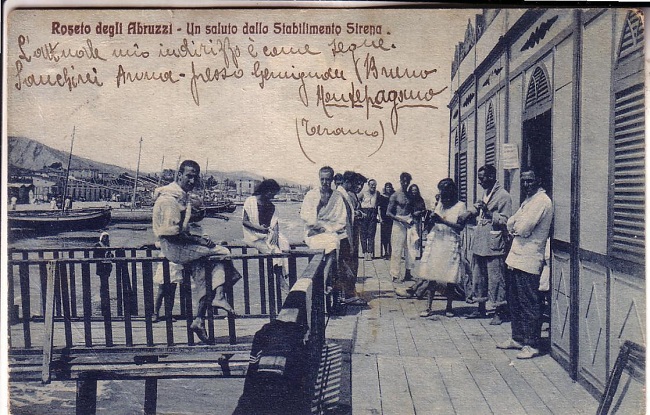 Roseto degli Abruzzi - Un saluto dallo Stabilimento Sirena
L'attuale mio indirizzo è come segue.
Anna - presso (Bruno
Montepagano
(Teramo)